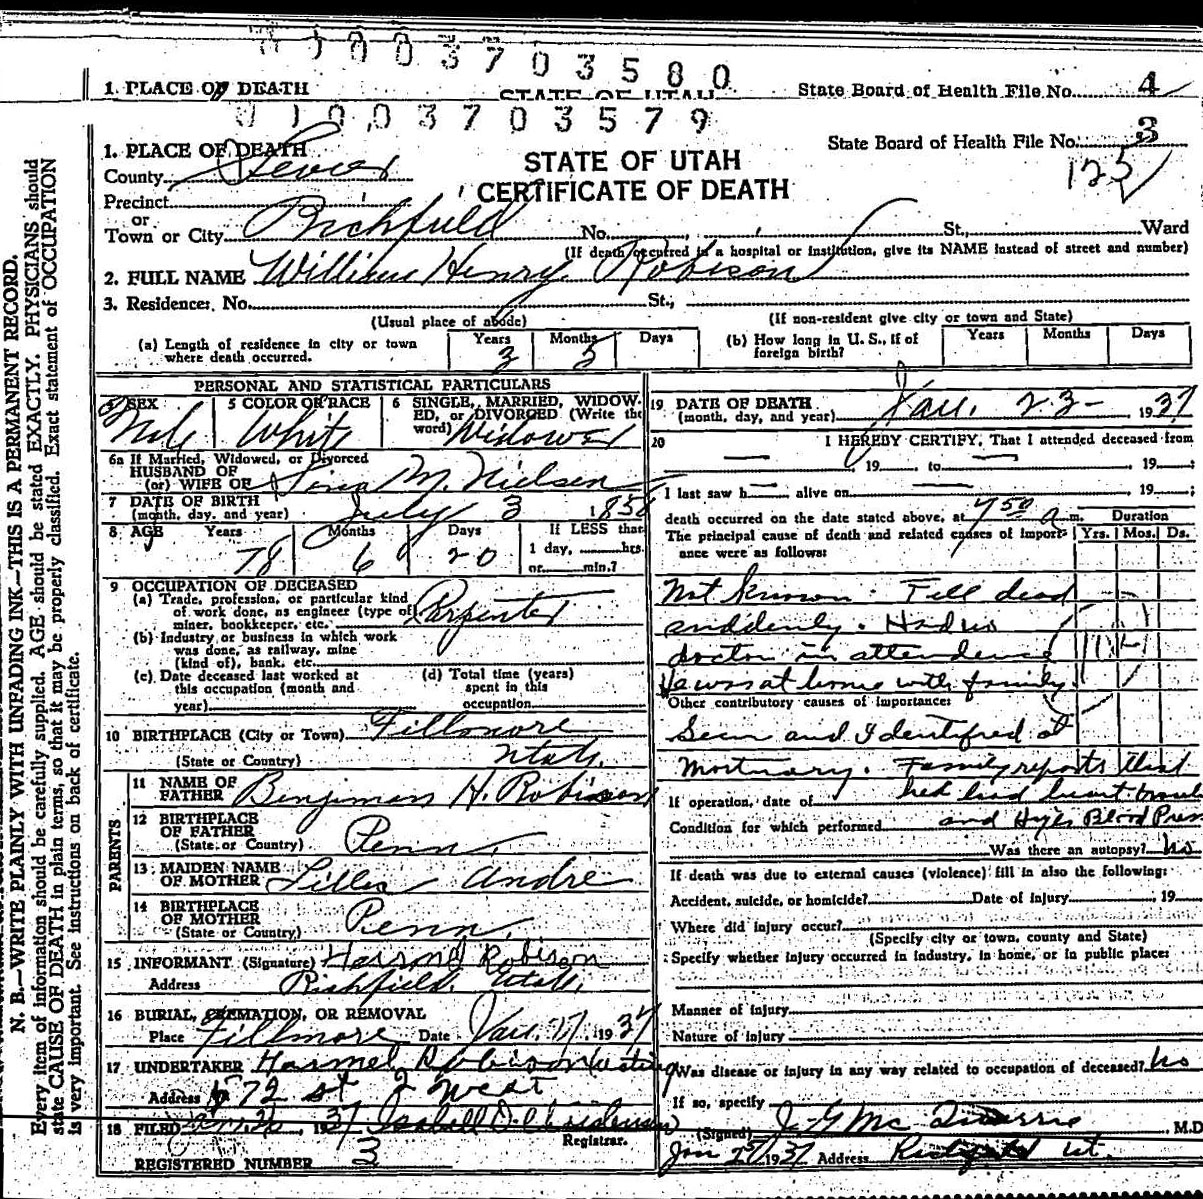 1003703580
1. PLACE OF DEATH STATE OF UTAH State Board of Health File No. 4
1003703579
State Board of Health File No. 3
1. PLACE OF DEATH
County Sevier
STATE OF UTAH
125
CERTIFICATE OF DEATH
Precinct
or
Town or City Richfield No. St., Ward
(If death occurred in a hospital or institution, give its NAME instead of street and number)
2. FULL NAME William Henry Robison
3. Residences, No. St.,
(Usual place of abode) (If non-resident give city or town and State)
(a) Length of residence in city or town where death occurred. Years 3 Months 5 Days
(b) How long in U. S., if of foreign birth? Years Months Days
PERSONAL AND STATISTICAL PARTICULARS
SEX Male
5 COLOR OR RACE White
6 SINGLE, MARRIED, WIDOWED, or DIVORCED (Write the word) Widower
6a If Married, Widowed, or Divorced
HUSBAND OF
(or) WIFE OF M. Nielsen
7 DATE OF BIRTH
(month, day, and year) July 3 1858
8 AGE Years 78 Months 6 Days 20 If LESS than 1 day, hrs. or min.?
9 OCCUPATION OF DECEASED
(a) Trade, profession, or particular kind
of work done, as engineer (type of) Carpenter
miner, bookkeeper, etc.
(b) Industry or business in which work
was done, as railway, mine
(kind of), bank, etc.
(c) Date deceased last worked at
this occupation (month and
year)
(d) Total time (years)
spent in this
occupation
10 BIRTHPLACE (City or Town) Fillmore
(State or Country) Utah.
PARENTS
11 NAME OF FATHER Benjiman H. Robison
12 BIRTHPLACE
OF FATHER
(State or Country) Penn.
13 MAIDEN NAME
OF MOTHER Lillis Andre
14 BIRTHPLACE
OF MOTHER
(State or Country) Penn.
15 INFORMANT (Signature) Robison
Address Richfield, Utah.
16 BURIAL, CREMATION, OR REMOVAL
Place Fillmore Date Jan. 27, 1937
17 UNDERTAKER Robison
Address 72 st 2 West
18 FILED 1937 Isabell D. Christensen
Registrar.
REGISTERED NUMBER 3
19 DATE OF DEATH
(month, day, and year) Jan. 23- 1937
20 I HEREBY CERTIFY, That I attended deceased from
— 19— to — 19—;
I last saw h— alive on — 19—;
death occurred on the date stated above, at 7 50 a m. Duration
The principal cause of death and related causes of importance were as follows: Yrs. Mos. Ds.
Not known. Fell dead
suddenly. Had no
doctor in attendence
He was at home with family.
Other contributory causes of importance:
Seen and Identified at
mortuary. Family reports that
If operation, date of had had heart trouble
Condition for which performed and High Blood Press
Was there an autopsy? No
If death was due to external causes (violence) fill in also the following:
Accident, suicide, or homicide? Date of injury , 19
Where did injury occur?
(Specify city or town, county and State)
Specify whether injury occurred in industry, in home, or in public place:
Manner of injury
Nature of injury
Was disease or injury in any way related to occupation of deceased? No
If so, specify
(Signed) J G Mc , M.D.
Jan 1937 Address Richfield Ut.
N. B.—WRITE PLAINLY WITH UNFADING INK—THIS IS A PERMANENT RECORD.
Every item of information should be carefully supplied. AGE should be stated EXACTLY. PHYSICIANS should
state CAUSE OF DEATH in plain terms, so that it may be properly classified. Exact statement of OCCUPATION
is very important. See instructions on back of certificate.